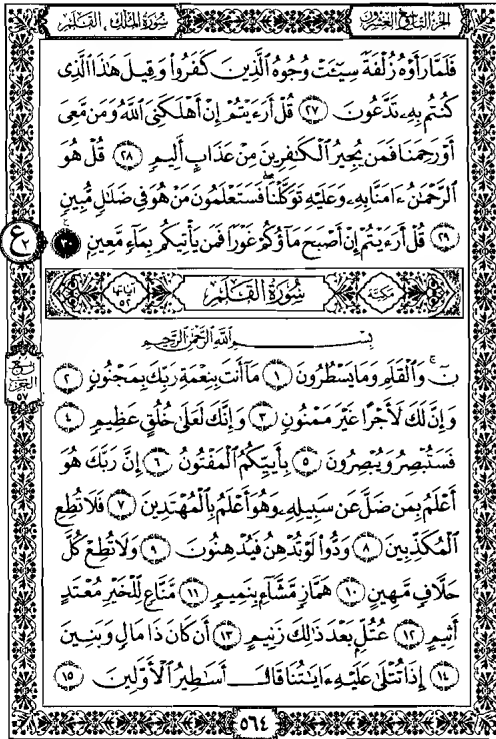 الجزء التاسع والعشرون
سُورَةُ المُلْكِ ، القَلَمِ
فَلَمَّا رَأَوْهُ زُلْفَةً سِيٓـَٔتْ وُجُوهُ ٱلَّذِينَ كَفَرُوا۟ وَقِيلَ هَٰذَا ٱلَّذِى
كُنتُم بِهِۦ تَدَّعُونَ ٢٧ قُلْ أَرَءَيْتُمْ إِنْ أَهْلَكَنِىَ ٱللَّهُ وَمَن مَّعِىَ
أَوْ رَحِمَنَا فَمَن يُجِيرُ ٱلْكَٰفِرِينَ مِنْ عَذَابٍ أَلِيمٍ ٢٨ قُلْ هُوَ
ٱلرَّحْمَٰنُ ءَامَنَّا بِهِۦ وَعَلَيْهِ تَوَكَّلْنَا فَسَتَعْلَمُونَ مَنْ هُوَ فِى ضَلَٰلٍ مُّبِينٍ
٢٩ قُلْ أَرَءَيْتُمْ إِنْ أَصْبَحَ مَآؤُكُمْ غَوْرًا فَمَن يَأْتِيكُم بِمَآءٍ مَّعِينٍۭ ٣٠
ع ٢
مكيّة
سُورَةُ القَلَمِ
آياتها ٥٢
بِسْمِ ٱللَّهِ ٱلرَّحْمَٰنِ ٱلرَّحِيمِ
نٓ ۚ وَٱلْقَلَمِ وَمَا يَسْطُرُونَ ١ مَآ أَنتَ بِنِعْمَةِ رَبِّكَ بِمَجْنُونٍ ٢
ربع
الحزب
٥٧
وَإِنَّ لَكَ لَأَجْرًا غَيْرَ مَمْنُونٍ ٣ وَإِنَّكَ لَعَلَىٰ خُلُقٍ عَظِيمٍ ٤
فَسَتُبْصِرُ وَيُبْصِرُونَ ٥ بِأَييِّكُمُ ٱلْمَفْتُونُ ٦ إِنَّ رَبَّكَ هُوَ
أَعْلَمُ بِمَن ضَلَّ عَن سَبِيلِهِۦ وَهُوَ أَعْلَمُ بِٱلْمُهْتَدِينَ ٧ فَلَا تُطِعِ
ٱلْمُكَذِّبِينَ ٨ وَدُّوا۟ لَوْ تُدْهِنُ فَيُدْهِنُونَ ٩ وَلَا تُطِعْ كُلَّ
حَلَّافٍ مَّهِينٍ ١٠ هَمَّازٍ مَّشَّآءٍۭ بِنَمِيمٍ ١١ مَّنَّاعٍ لِّلْخَيْرِ مُعْتَدٍ
أَثِيمٍ ١٢ عُتُلٍّۭ بَعْدَ ذَٰلِكَ زَنِيمٍ ١٣ أَن كَانَ ذَا مَالٍ وَبَنِينَ
١٤ إِذَا تُتْلَىٰ عَلَيْهِ ءَايَٰتُنَا قَالَ أَسَٰطِيرُ ٱلْأَوَّلِينَ ١٥
٥٦٤